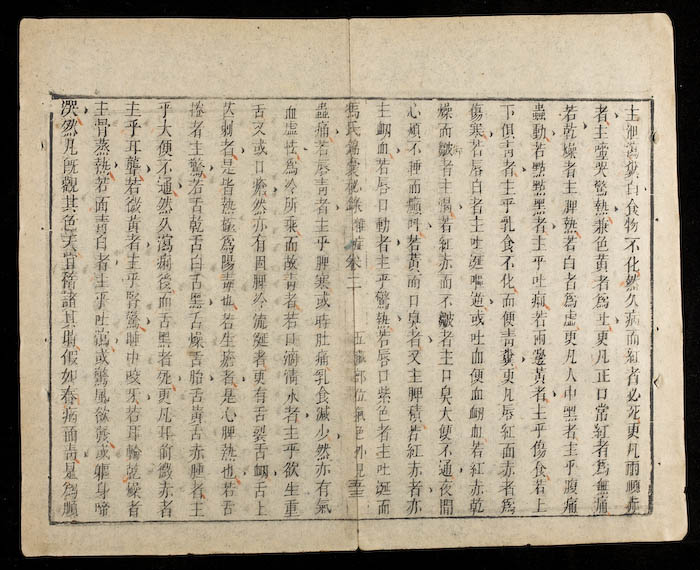 主泄瀉糞白食物不化然久病面紅者必死更凡兩顴赤
者主啼哭驚熱兼色黃者為吐更凡正口常紅者為無痛
若乾燥者主脾熱若白者為虛更凡人中黑者主乎腹痛
蟲動若點點黑者主乎吐痢若兩邊黃者主乎傷食若上
下俱青者主乎乳食不化而便青糞更凡唇紅而赤者為
傷寒若唇白者主吐涎嘔逆或吐血便血衄血若紅赤乾
燥而皺者主渴若紅赤而不皺者主口臭大便不通夜間
心煩不睡而癲叫若黃而口臭者又主脾積若紅赤者亦
主衄血若唇口動者主乎驚熱若唇口紫色者主吐涎而
馮氏錦囊秘錄雜症卷二 五臟部位氣色外見
蟲痛若唇青者主乎脾寒或時肚痛乳食減少然亦有氣
血虛怯為冷所乘而故青者若口滴清水者主乎欲生重
舌又或口瘡然亦有因脾冷流涎者更有舌裂舌衄舌上
芒刺者是皆熱極為陽毒也若生瘡者是心脾熱也若舌
捲者主驚若舌乾舌白舌黑舌燥舌胎舌黃舌赤腫者主
乎大便不通然久瀉痢後而舌黑者死更凡耳前微赤者
主乎耳聾若微黃者主乎腎驚睡中咬牙若耳輪乾燥者
主骨蒸熱若面青白者主乎吐瀉或驚風欲發或軀身啼
哭然凡既觀其色又當審諸其時假如春病面青是為順